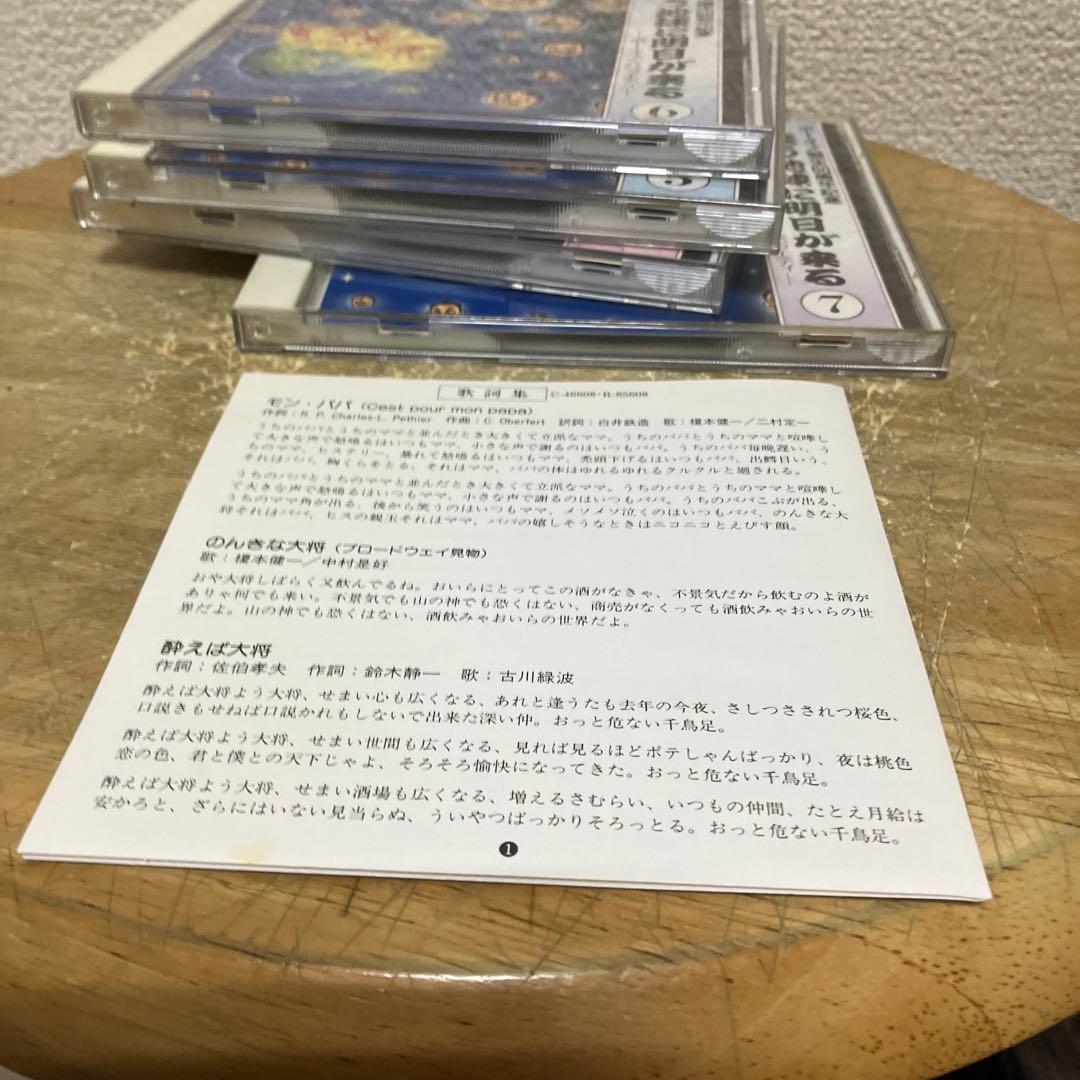 明日が来る
6
5
明日が来る
7
歌詞集 C-46608・R-85608
モン・パパ (Cest pour mon papa)
作詞：R. P. Charles-L. Pethier 作曲：C. Oberfert 訳詞：白井鉄造 歌：榎本健一／二村定一
うちのパパとうちのママと並んだとき大きくて立派なママ。うちのパパとうちのママと喧嘩し
て大きな声で怒鳴るはいつもママ、小さな声で謝るのはいつもパパ。うちのパパ毎晩遅い、う
ちのママ、ヒステリー、暴れて怒鳴るはいつもママ、禿頭下げるはいつもパパ、出鱈目いう、
それはパパ、胸ぐらをとる、それはママ、パパの体はゆれるゆれるクルクルと廻される。
うちのパパとうちのママと並んだとき大きくて立派なママ。うちのパパとうちのママと喧嘩し
て大きな声で怒鳴るはいつもママ、小さな声で謝るのはいつもパパ。うちのパパこぶが出る、
うちのママ角が出る、後から笑うのはいつもママ、メソメソ泣くのはいつもパパ、のんきな大
将それはパパ、ヒスの親玉それはママ、パパの嬉しそうなときはニコニコとえびす顔。
のんきな大将（ブロードウエイ見物）
歌：榎本健一／中村是好
おや大将しばらく又飲んでるね。おいらにとってこの酒がなきゃ、不景気だから飲むのよ酒が
ありゃ何でも来い。不景気でも山の神でも恐くはない、商売がなくっても酒飲みゃおいらの世
界だよ。山の神でも恐くはない、酒飲みゃおいらの世界だよ。
酔えば大将
作詞：佐伯孝夫 作詞：鈴木静一 歌：古川緑波
酔えば大将よう大将、せまい心も広くなる、あれと逢うたも去年の今夜、さしつさされつ桜色、
口説きもせねば口説かれもしないで出来た深い仲。おっと危ない千鳥足。
酔えば大将よう大将、せまい世間も広くなる、見れば見るほどボテしゃんばっかり、夜は桃色
恋の色、君と僕との天下じゃよ、そろそろ愉快になってきた。おっと危ない千鳥足。
酔えば大将よう大将、せまい酒場も広くなる、増えるさむらい、いつもの仲間、たとえ月給は
安かろと、ざらにはいない見当らぬ、ういやつばっかりそろっとる。おっと危ない千鳥足。
1